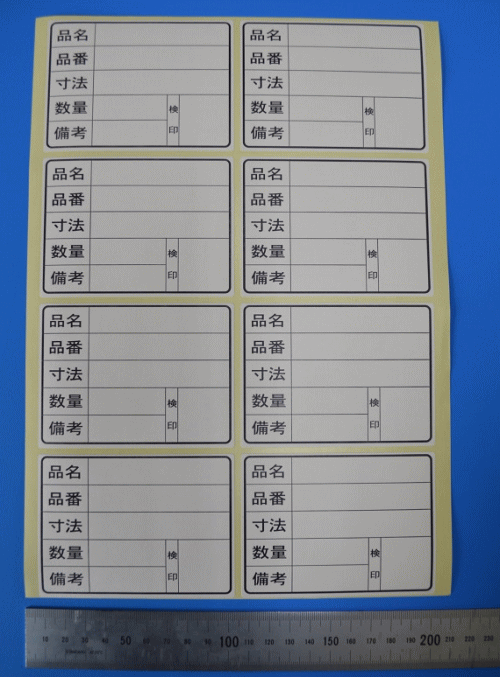 品名
品番
寸法
数量
検印
備考
品名
品番
寸法
数量
検印
備考
品名
品番
寸法
数量
検印
備考
品名
品番
寸法
数量
検印
備考
品名
品番
寸法
数量
検印
備考
品名
品番
寸法
数量
検印
備考
品名
品番
寸法
数量
検印
備考
品名
品番
寸法
数量
検印
備考
10 20 30 40 50 60 70 80 90 100 110 120 130 140 150 160 170 180 190 200 210 220 230